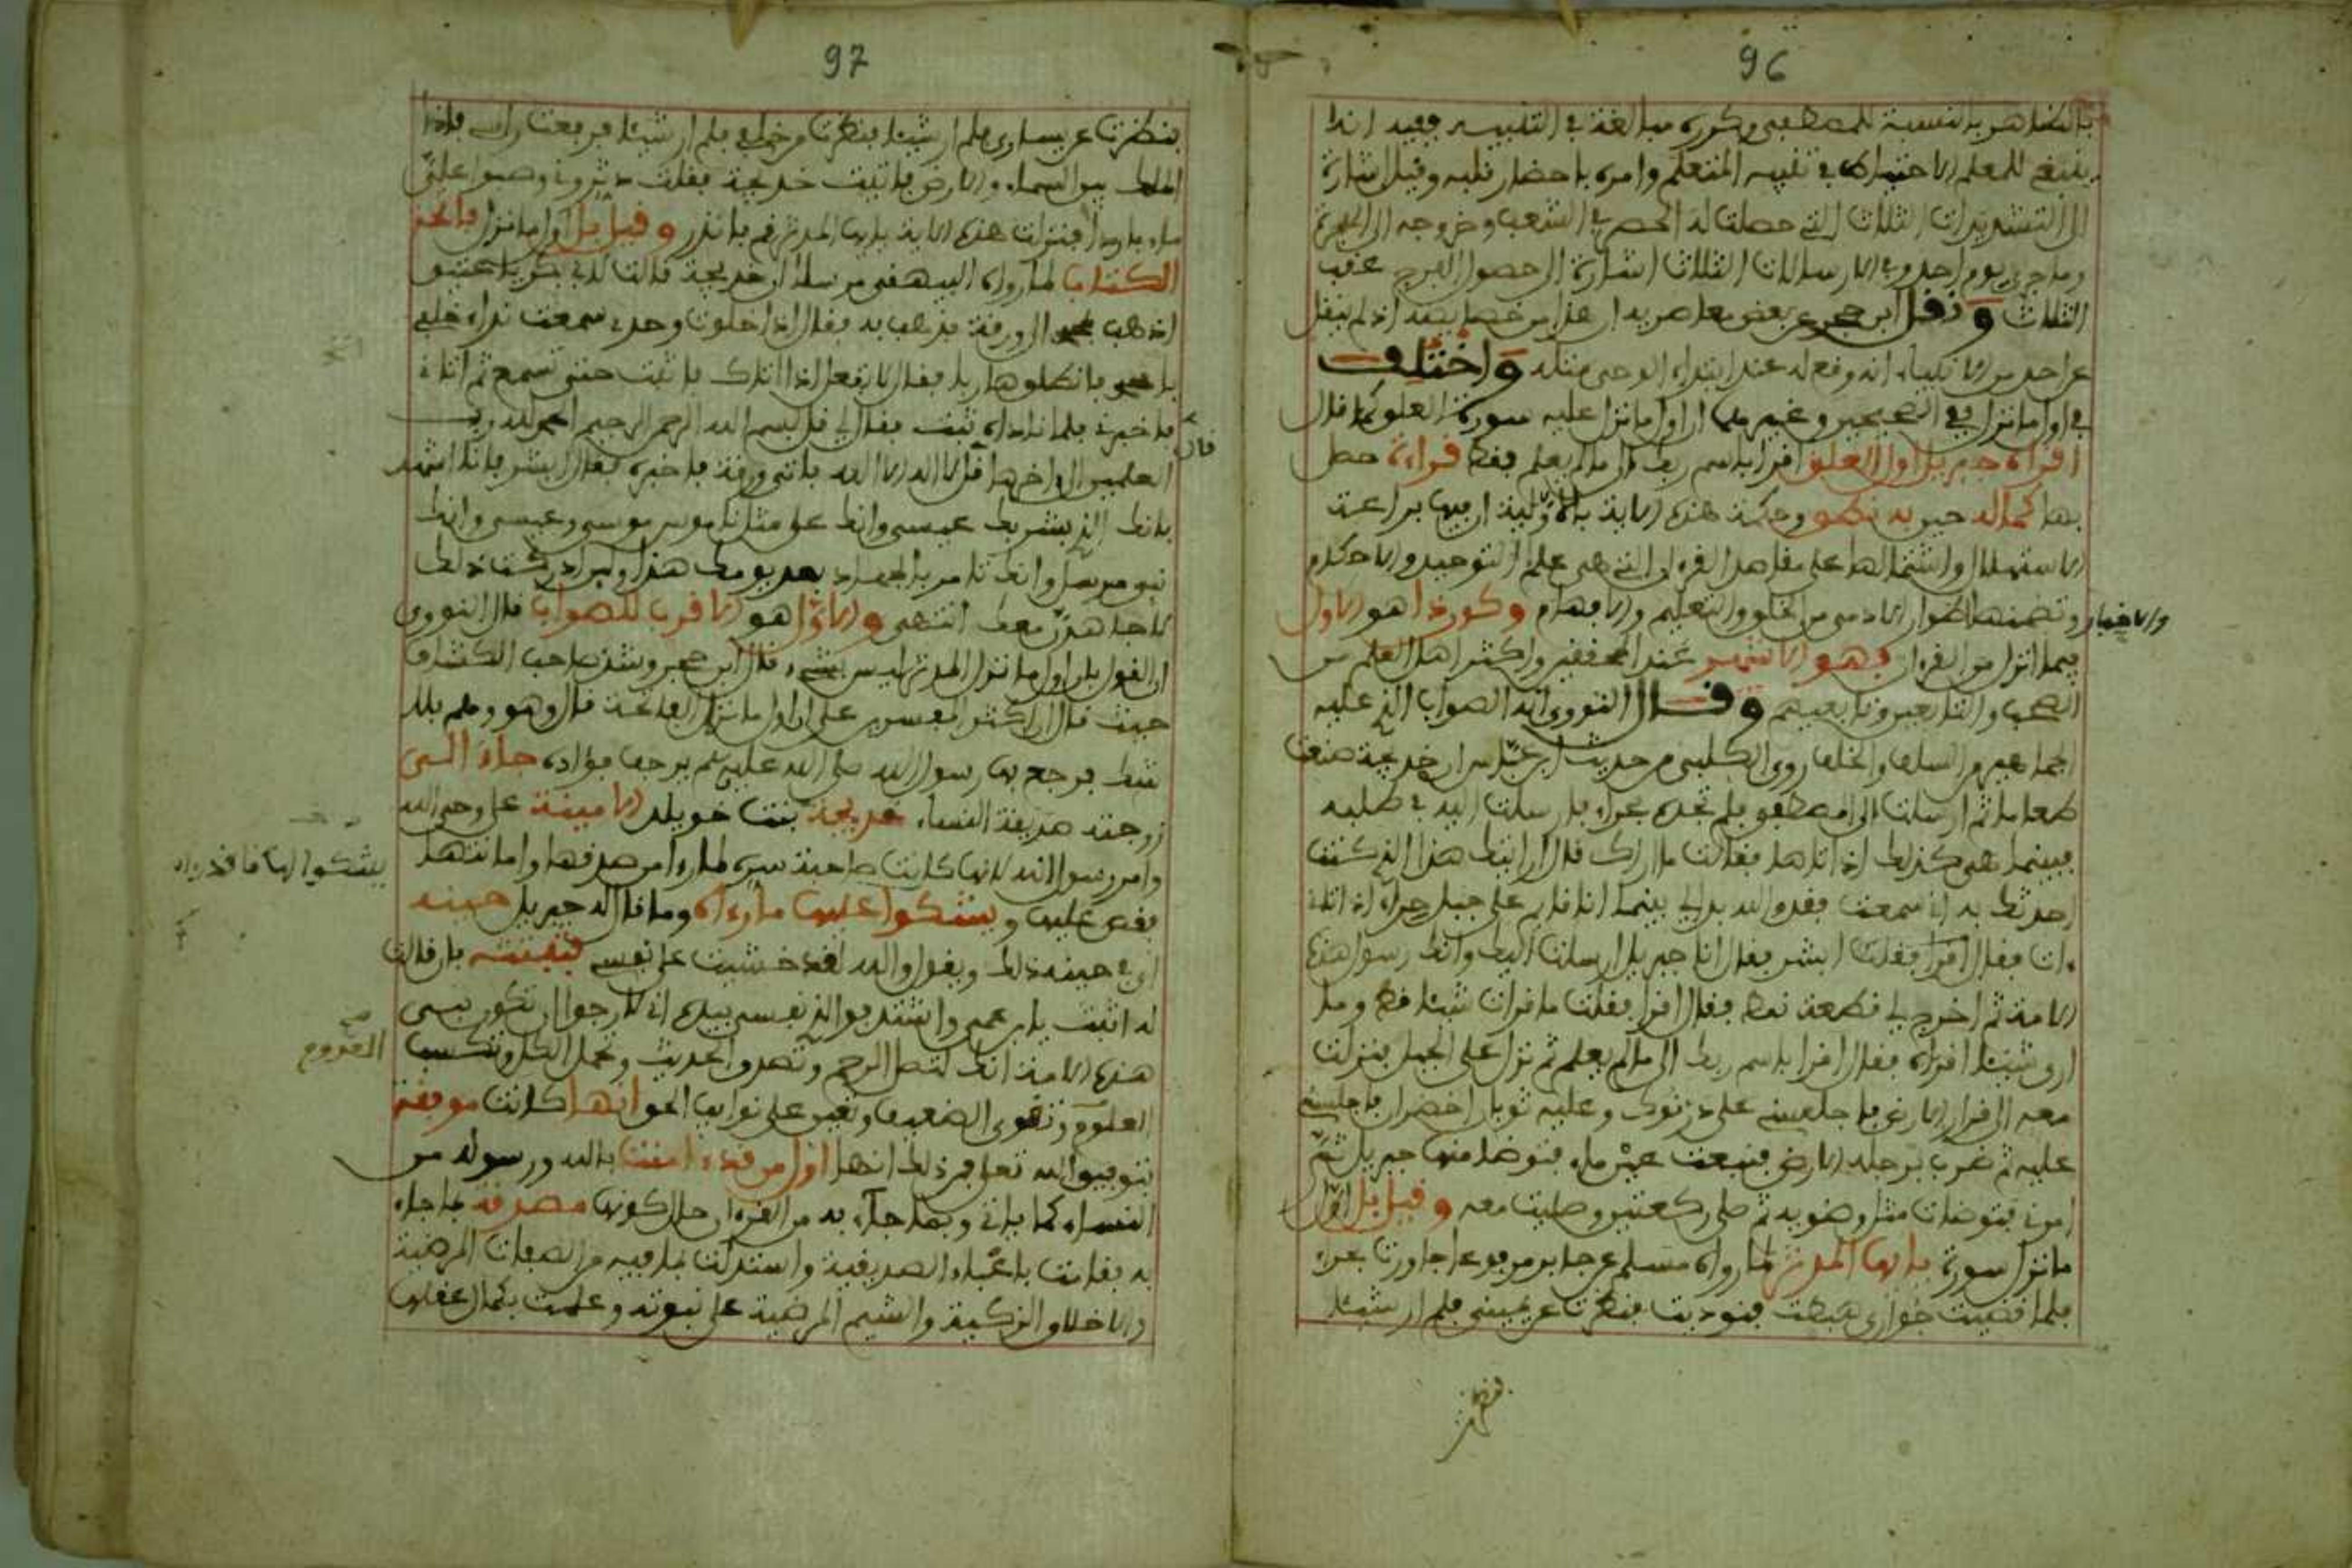 96
بالتظاهر بالنسبة للمصطفى وكرره مبالغة في التنبيه ففيه انه
ينبغي للمعلم الاحتياط في تنبيه المتعلم وامره باحضار قلبه وقيل اشارة
الى التشديدات الثلاث التي حصلت له الحصر في الشعب وخروجه الى الهجرة
وما جرى يوم احد وفي الارسالات الثلاث اشارة الى حصول الفرج عقب
الثلاث ونقل ابن حجر عن بعض معاصريه ان هذا من خصايصه اذ لم ينقل
عن احد من الانبياء انه وقع له عند ابتداء الوحي مثله واختلف
في اول ما نزل ففي الصحيحين وغيرهما ان اول ما نزل عليه سورة العلق كما قال
اقراه جبريل اول العلق اقرا باسم ربك الى ما لم يعلم فقط قراءة حصل
بها كماله حين به نطق وحكمة هذه الاية بالاولية ان فيها براعة
الاستهلال واشتمالها على مقاصد القرءان التي هي علم التوحيد والاحكام
والاخبار وتضمنها اطوار الادمي من الخلق والتعليم والافهام وكون ذا هو الاول
فيما انزل من القرءان فهو الاشهر عند المحققين واكثر اهل العلم من
الصحب والتابعين وتابعيهم وقال النووي انه الصواب الذي عليه
الجماهير من السلف والخلف روى الكلبي من حديث ابن عباس ان خديجة صنعت
طعاما ثم ارسلت الى المصطفى فلم تجده بحراء فارسلت اليه في طلبه
فبينما هي كذلك اذ اتاها فقالت ما اراك قال ارايتك هذا الذي كنت
احدثك به اني سمعت فقد والله بدا لي بينما انا قايم على جبل حراء اذ اتاني
ءات فقال اقرا فقلت ابشر فقال انا جبريل ارسلت اليك وانك رسول هذه
الامة ثم اخرج لي قطعة نمط فقال اقرا فقلت ما قرات شيئا قط وما
ارى شيئا اقراه فقال اقرا باسم ربك الى ما لم يعلم ثم نزل على الجبل فنزلت
معه الى قرار الارض فاجلسني على درنوك وعليه ثوبان اخضران فاجلسني
عليه ثم ضرب برجله الارض فنبعت عين ماء فتوضا منها جبريل ثم
امرني فتوضات مثل وضويه ثم صلى ركعتين وصليت معه وقيل بل اول
ما نزل سورة يايها المدثر لما رواه مسلم عن جابر مرفوعا جاورت بحراء
فلما قضيت جواري هبطت فنوديت فنظرت عن يميني فلم ار شيئا
97
فنظرت عن يساري فلم ار شيئا فنظرت من خلفي فلم ار شيئا فرفعت راسي فاذا
الملك بين السماء والارض فاتيت خديجة فقلت دثروني وصبوا علي
ماء باردا فنزلت هذه الاية يايها المدثر قم فانذر وقيل بل اول ما نزل فاتحة
الكتاب لما رواه البيهقي مرسلا ان خديجة قالت لابي بكر يا عتيق
اذهب بمحمد الى ورقة فذهب به فقال اذا خلوت وحدي سمعت نداء خلفي
يا محمد فانطلق هاربا فقال لا تفعل اذا اتاك فاثبت حتى تسمع ثم اتاني
فاخبرني فلما ناداه ثبت فقال لي قل بسم الله الرحمن الرحيم الحمد لله رب
العلمين الى ءاخرها قال قل لا اله الا الله فاتى ورقة فاخبره فقال ابشر فانا اشهد
بانك الذي بشر بك عيسى وانك على مثل ناموس موسى وعيسى وانك
نبي مرسل وانك تامر بالجهاد بعد يومك هذا ولين ادركت ذلك
لاجاهدن معك انتهى والاول هو الاقرب للصواب قال النووي
ان القول بان اول ما نزل المدثر ليس بشيء قال ابن حجر وشذ صاحب الكشاف
حيث قال ان اكثر المفسرين على ان اول ما نزل الفاتحة قال وهو وهم بلا
شك فرجع بها رسول الله صلى الله عليه وسلم يرجف فؤاده جاء الى
زوجته صديقة النساء خديجة بنت خويلد الامينة على وحي الله
وامر رسول الله لانها كانت صاحبة سره لما راء من صدقها وامانتها
يقص عليها ويشكوا عليها ما رءاه وما قاله جبريل حينه
اي في حينه ذلك ويقول والله لقد خشيت على نفسي فثبتته بان قالت
له اثبت يا ابن عمي واستند فوالذي نفسي بيده اني لارجوا ان تكون نبي
هذه الامة انك لتصل الرحم وتصدق الحديث وتحمل الكل وتكسب
المعدوم وتقوي الضعيف وتعين على نوايب الحق انها كانت موفقة
بتوفيق الله تعالى فمن ذلك انها اول من قد ءامنت بالله ورسوله من
النساء كما ياتي وبما جاء به من القرءان حال كونها مصدقة ما جاء
به فقامت باعباء الصديقية واستدلت بما فيه من الصفات المرضية
والاخلاق الزكية والشيم المرضية على نبوته وعلمت بكمال عقلها